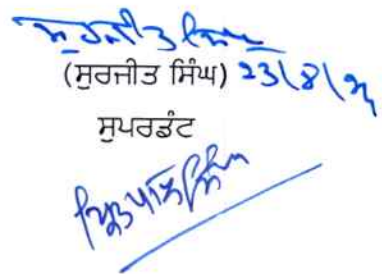 ਸੁਰਜੀਤ ਸਿੰਘ
(ਸੁਰਜੀਤ ਸਿੰਘ) 23/8/24
ਸੁਪਰਡੰਟ